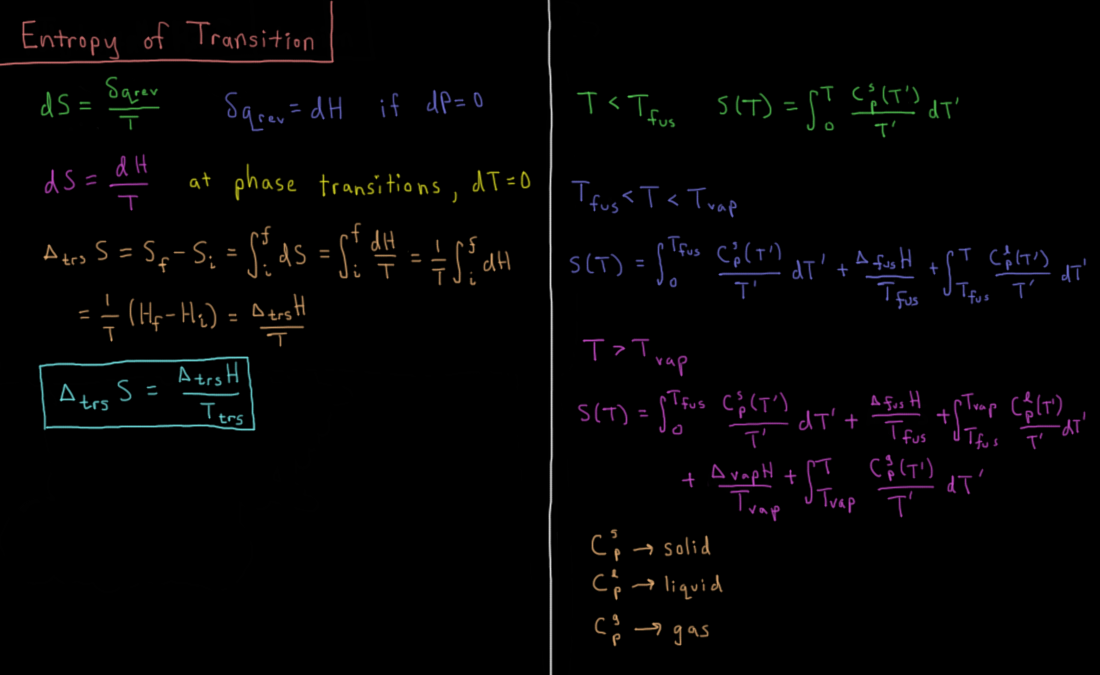 Entropy of Transition
dS = δq_rev / T    δq_rev = dH if dP=0
dS = dH / T   at phase transitions, dT=0
Δ_trs S = S_f − S_i = ∫_i^f dS = ∫_i^f dH/T = 1/T ∫_i^f dH
= 1/T (H_f − H_i) = Δ_trs H / T
Δ_trs S = Δ_trs H / T_trs
T < T_fus    S(T) = ∫_0^T C_p^s(T') / T' dT'
T_fus < T < T_vap
S(T) = ∫_0^T_fus C_p^s(T') / T' dT' + Δ_fus H / T_fus + ∫_T_fus^T C_p^l(T') / T' dT'
T > T_vap
S(T) = ∫_0^T_fus C_p^s(T') / T' dT' + Δ_fus H / T_fus + ∫_T_fus^T_vap C_p^l(T') / T' dT'
+ Δ_vap H / T_vap + ∫_T_vap^T C_p^g(T') / T' dT'
C_p^s → solid
C_p^l → liquid
C_p^g → gas